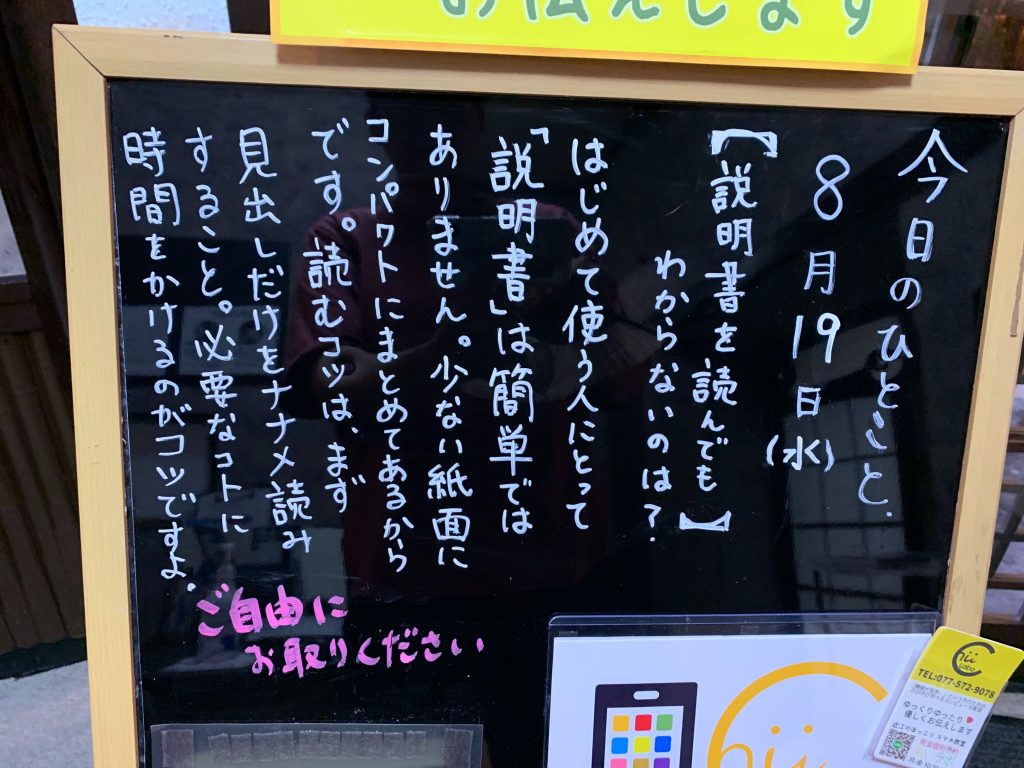 お伝えします
今日のひとこと.
8月19日(水)
【説明書を読んでも
わからないのは?】
はじめて使う人にとって
「説明書」は簡単では
ありません。少ない紙面に
コンパクトにまとめてあるから
です。読むコツは、まず
見出しだけをナナメ読み
すること。必要なコトに
時間をかけるのがコツですよ。
ご自由に
お取りください
hii
Chii
Labo
TEL:077-572-9078
ゆっくりゆったり
優しくお伝えします
近江のほっこりスマホ教室
完全個別予約